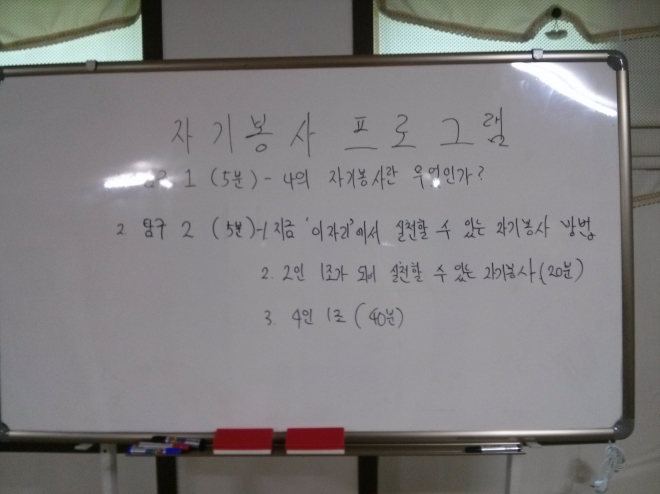 자기봉사 프로그램
탐구 1 (5분) - 나의 자기봉사란 무엇인가?
2. 탐구 2 (5분) - 1. 지금 '이자리'에서 실천할 수 있는 자기봉사 방법
2. 2인 1조가 되어 실천할 수 있는 자기봉사 (20분)
3. 4인 1조 (40분)